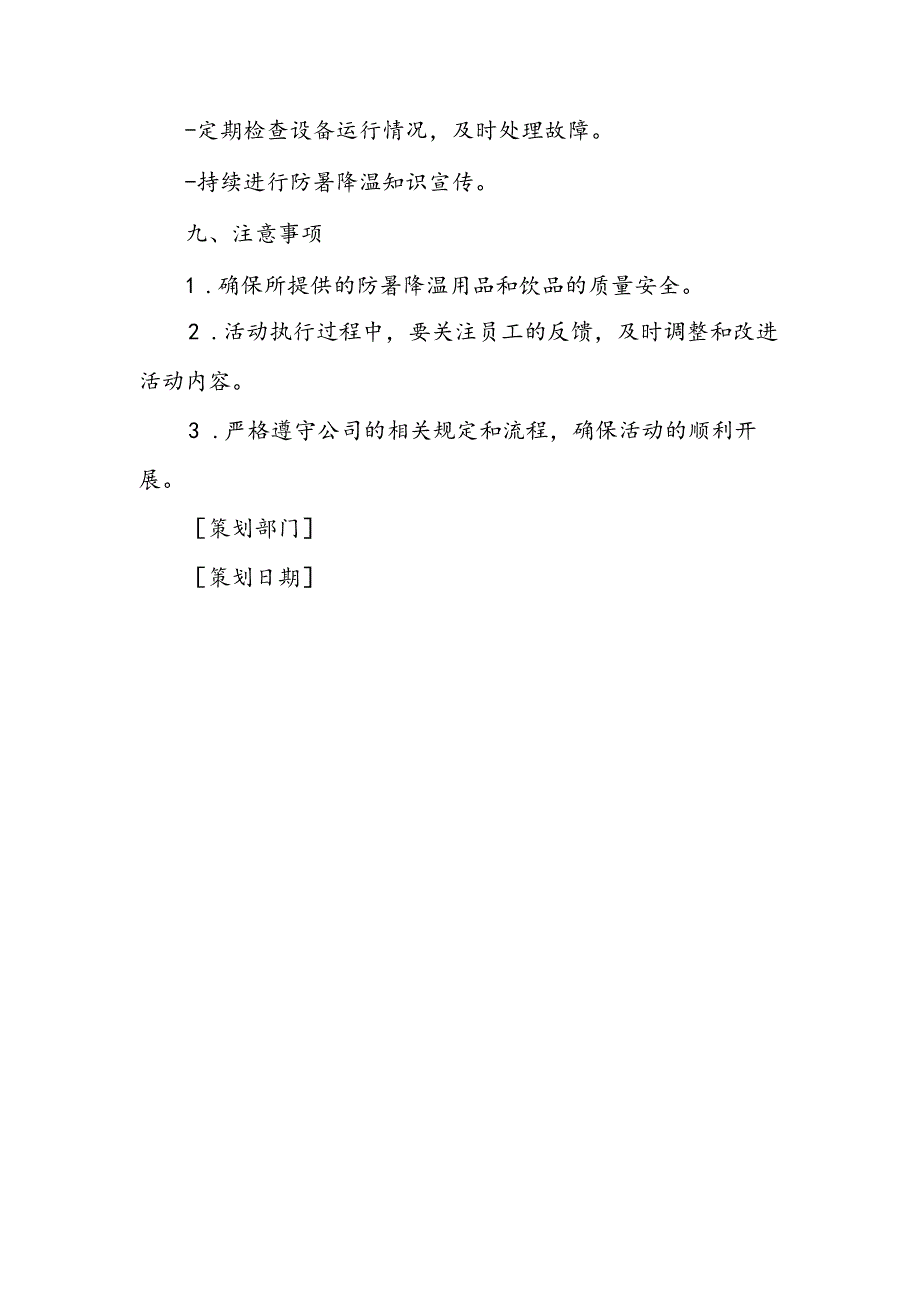 -定期检查设备运行情况，及时处理故障。
-持续进行防暑降温知识宣传。
九、注意事项
1 .确保所提供的防暑降温用品和饮品的质量安全。
2 .活动执行过程中，要关注员工的反馈，及时调整和改进
活动内容。
3 .严格遵守公司的相关规定和流程，确保活动的顺利开
展。
[策划部门]
[策划日期]